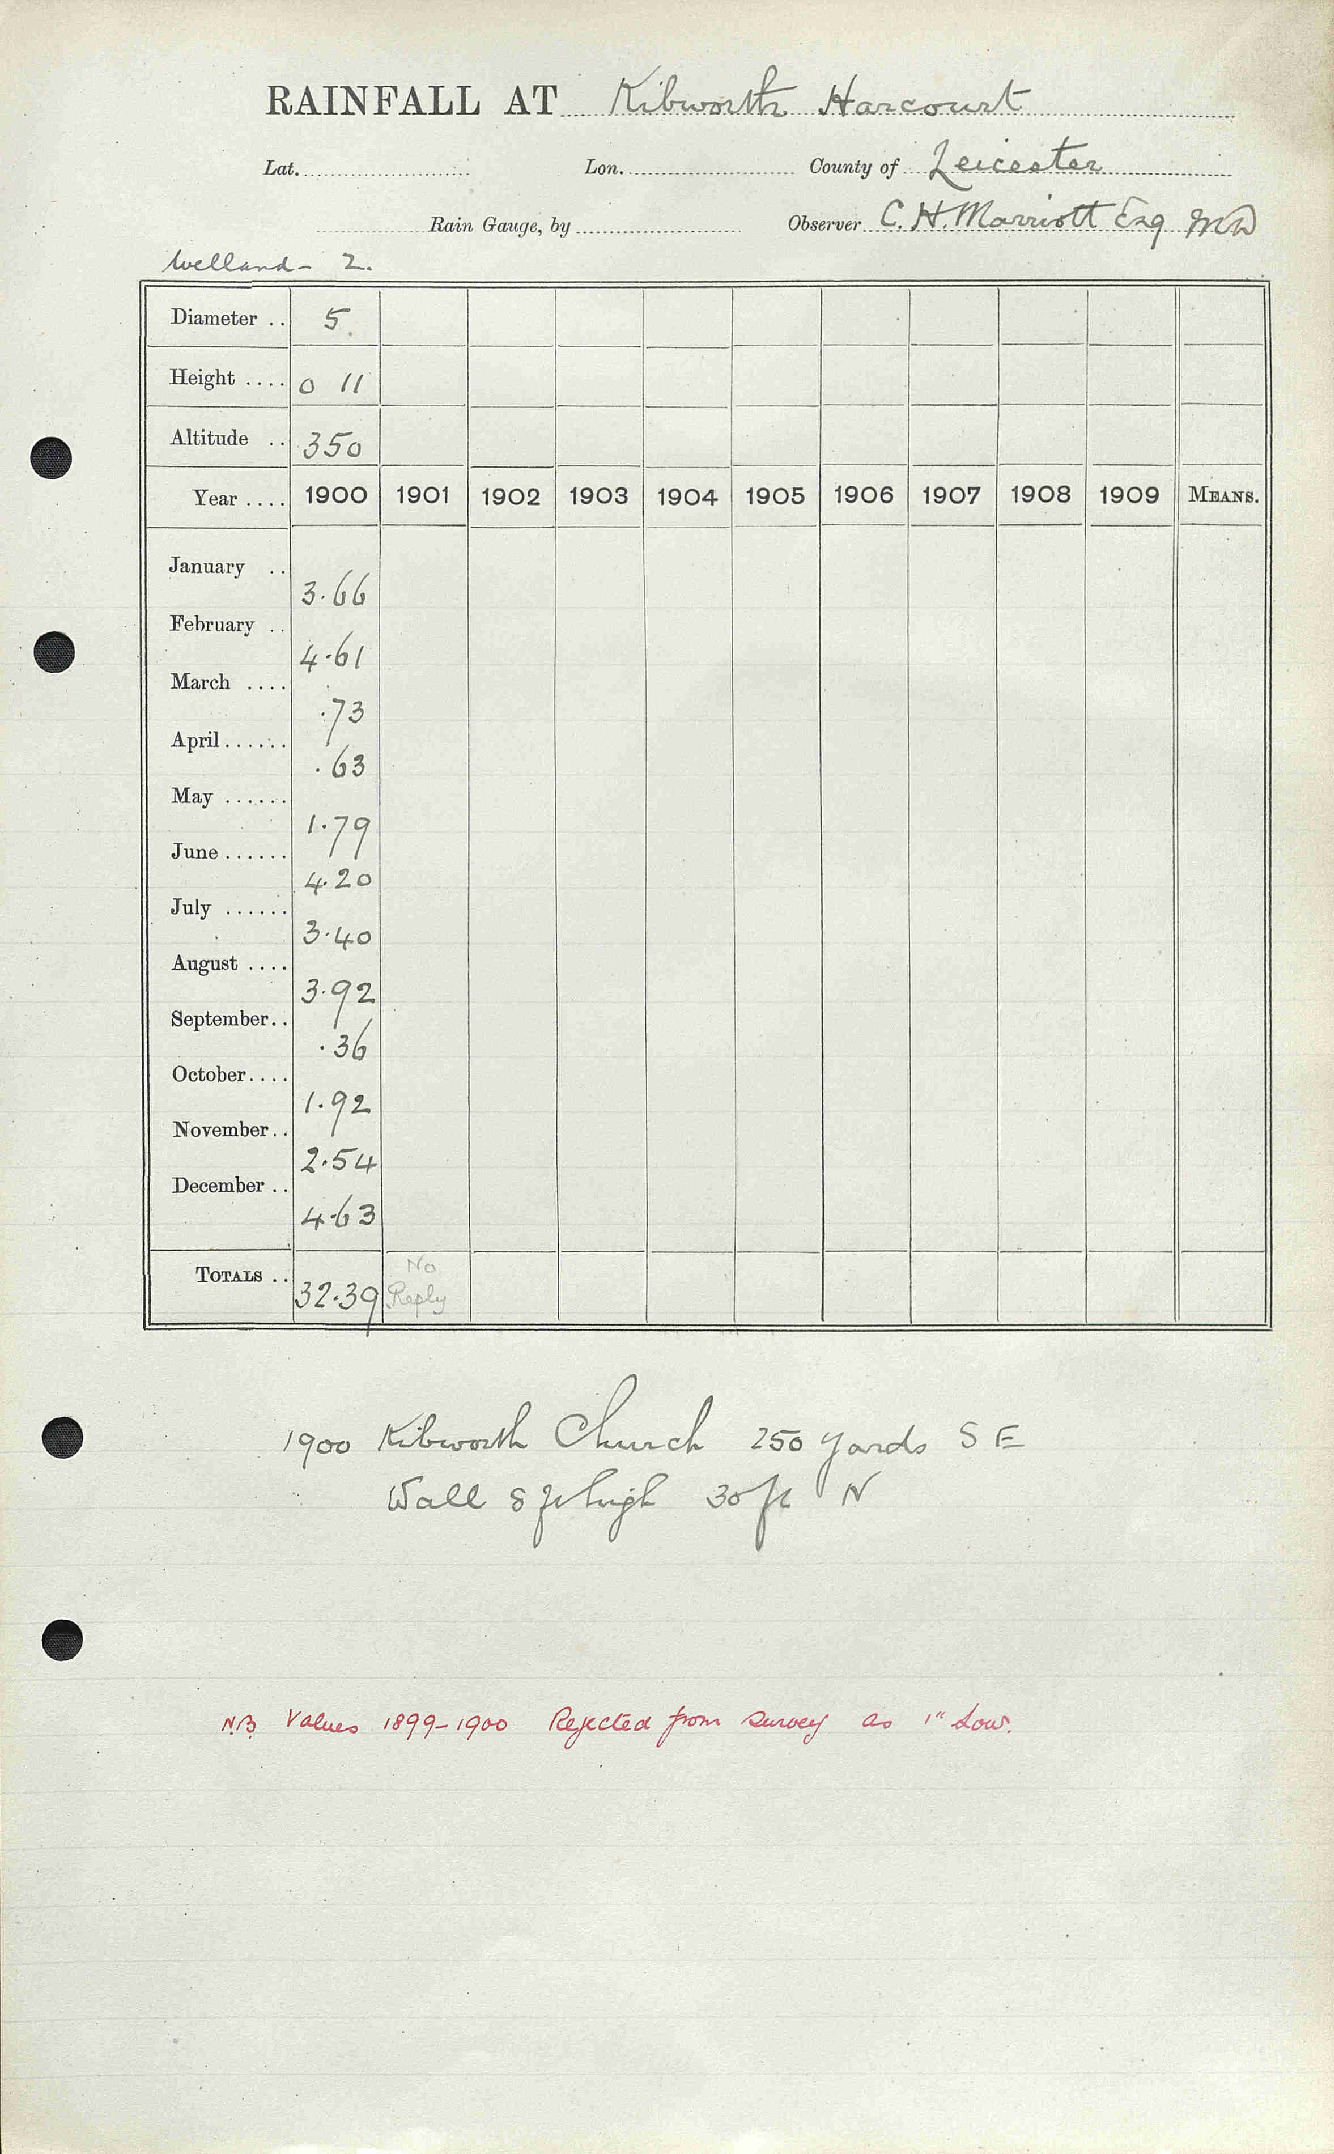 RAINFALL AT Kibworth Harcourt
Lat. Lon. County of Leicester
Rain Gauge, by Observer C. H. Marriott Esq MD
Welland - 2.
Diameter .. 5
Height .... 0 11
Altitude .. 350
Year .... 1900 1901 1902 1903 1904 1905 1906 1907 1908 1909 MEANS.
January .. 3.66
February .. 4.61
March .... .73
April ...... .63
May ...... 1.79
June ...... 4.20
July ...... 3.40
August .... 3.92
September.. .36
October.... 1.92
November.. 2.54
December .. 4.63
TOTALS .. 32.39 No Reply
1900 Kibworth Church 250 yards S E
Wall 8 ft high 30 ft N
N.B. Values 1899-1900 Rejected from survey as 1" Low.